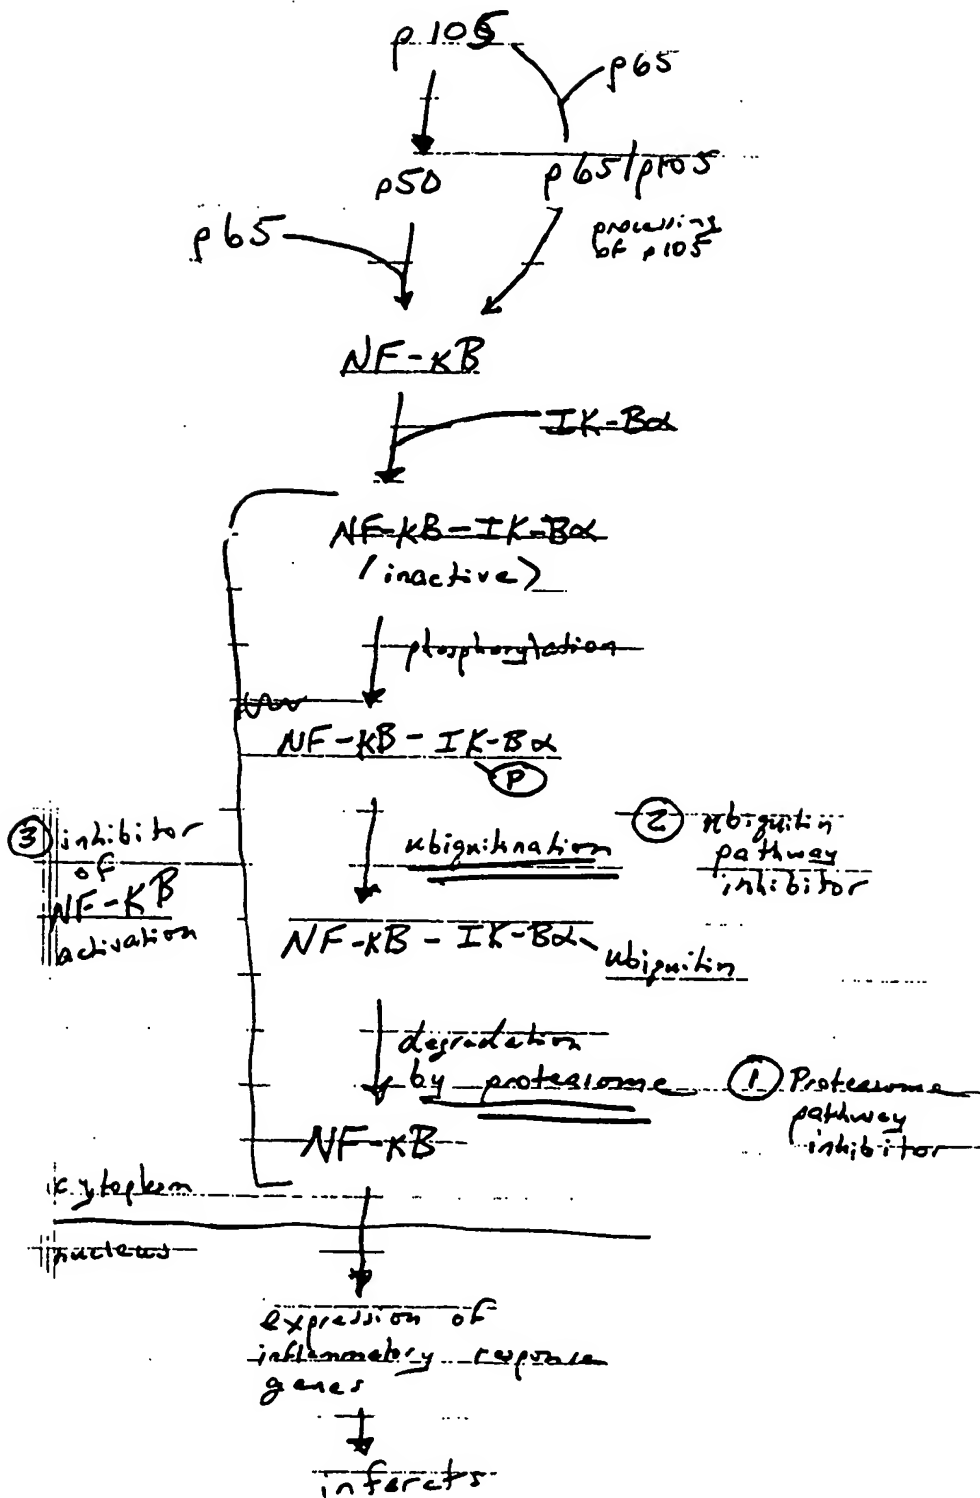 p105
p65
p50
p65/p105
processing
of p105
p65
NF-κB
IK-Bα
NF-κB-IK-Bα
(inactive)
phosphorylation
NF-κB-IK-Bα
P
③ inhibitor
of
NF-κB
activation
ubiquitination
② ubiquitin
pathway
inhibitor
NF-κB-IK-Bα
ubiquitin
degradation
by proteasome
① Proteasome
pathway
inhibitor
NF-κB
cytoplasm
nucleus
expression of
inflammatory response
genes
infarcts